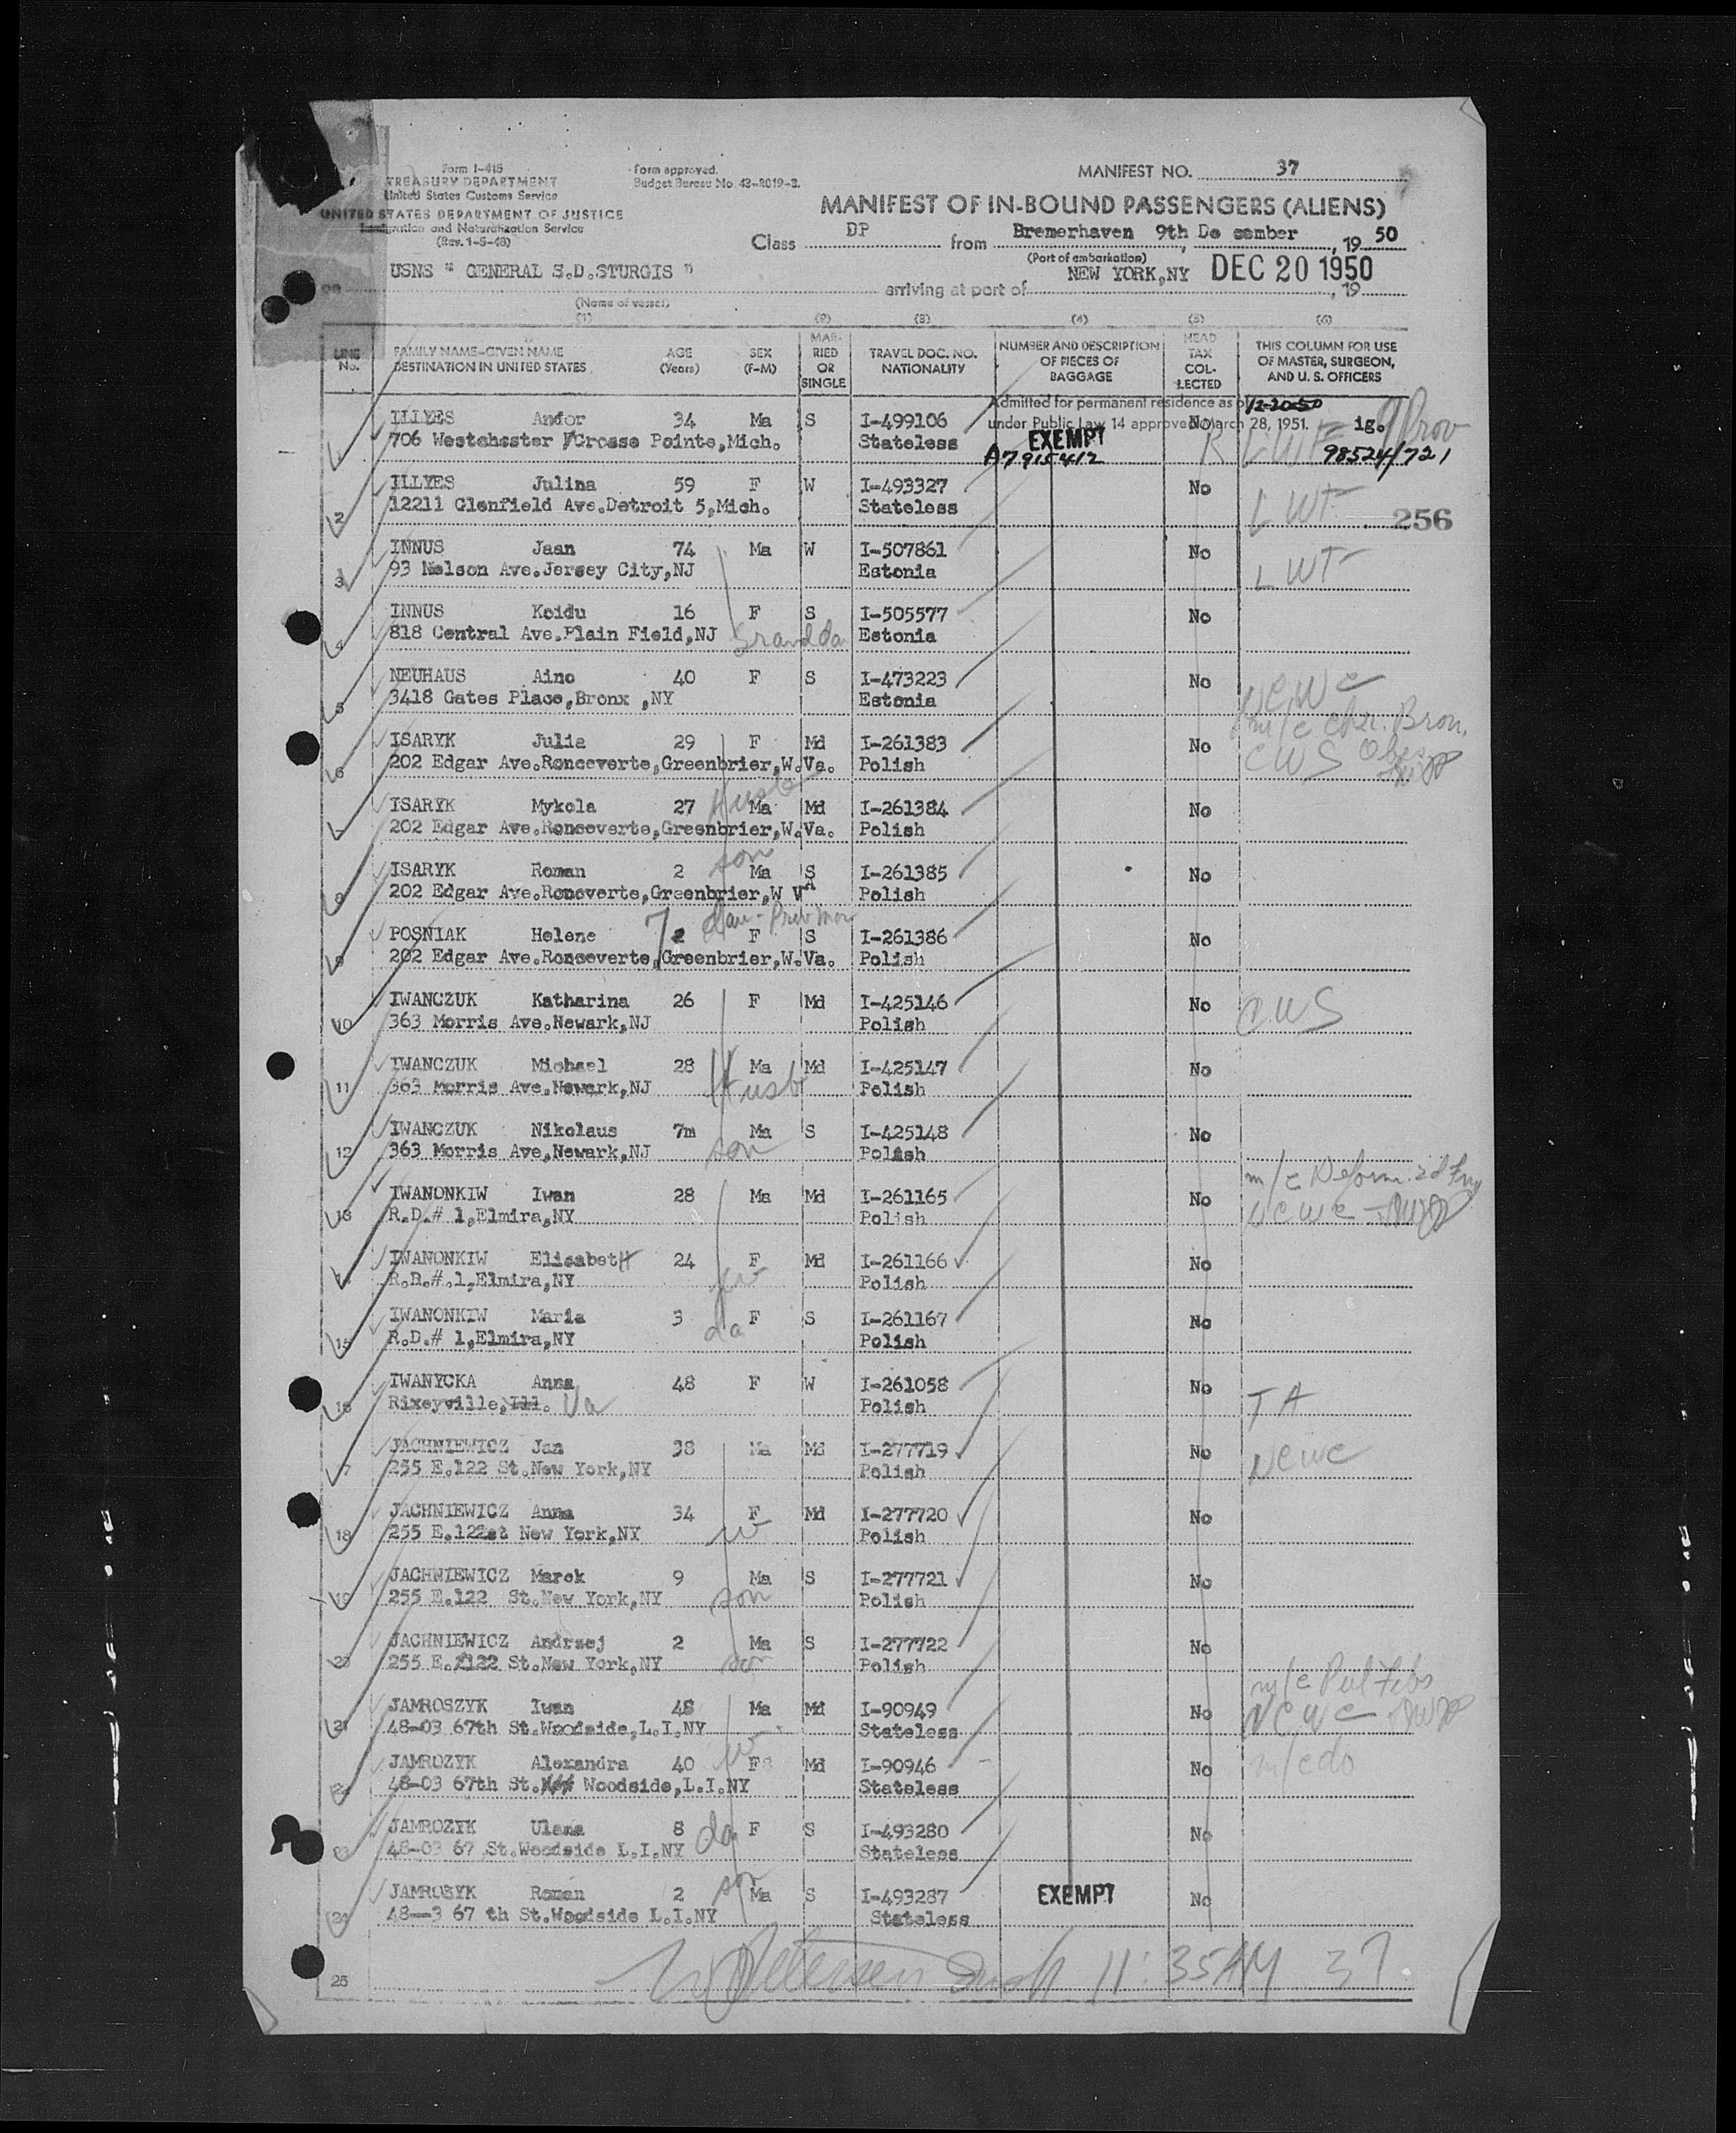 Form I-415
TREASURY DEPARTMENT
United States Customs Service
UNITED STATES DEPARTMENT OF JUSTICE
Immigration and Naturalization Service
(Rev. 1-5-48)
Form approved.
Budget Bureau No. 43-R019-2.
MANIFEST NO. 37
MANIFEST OF IN-BOUND PASSENGERS (ALIENS)
Class DP from Bremerhaven 9th De cember, 19 50
(Port of embarkation)
USNS " GENERAL S.D.STURGIS " arriving at port of NEW YORK,NY DEC 20 1950, 19
(Name of vessel)
(1) (2) (3) (4) (5) (6)
LINE No. FAMILY NAME—GIVEN NAME DESTINATION IN UNITED STATES AGE (Years) SEX (F-M) MAR-RIED OR SINGLE TRAVEL DOC. NO. NATIONALITY NUMBER AND DESCRIPTION OF PIECES OF BAGGAGE HEAD TAX COL-LECTED THIS COLUMN FOR USE OF MASTER, SURGEON, AND U. S. OFFICERS
Admitted for permanent residence as of 12-20-50
under Public Law 14 approved March 28, 1951. ig.
ILLYES Andor 34 Ma S I-499106 No
1 706 Westchester Grosse Pointe,Mich. Stateless EXEMPT A7915412 98524/721
ILLYES Julina 59 F W I-493327 No LWF
2 12211 Glenfield Ave.Detroit 5,Mich. Stateless 256
INNUS Jaan 74 Ma W I-507861 No LWF
3 93 Nelson Ave.Jersey City,NJ Estonia
INNUS Koidu 16 F S I-505577 No
4 818 Central Ave.Plain Field,NJ Grandda Estonia
NEUHAUS Aino 40 F S I-473223 No NCWC
5 3418 Gates Place,Bronx ,NY Estonia
m/c Chr. Bron.
ISARYK Julia 29 F Md I-261383 No CWS
6 202 Edgar Ave.Ronceverte,Greenbrier,W.Va. Polish
ISARYK Mykola 27 Husb Ma Md I-261384 No
7 202 Edgar Ave.Ronceverte,Greenbrier,W.Va. Polish
ISARYK Roman 2 son Ma S I-261385 No
8 202 Edgar Ave.Ronceverte,Greenbrier,W VA Polish
POSNIAK Helene 7 F S I-261386 No
9 202 Edgar Ave.Ronceverte,Greenbrier,W.Va. Polish
IWANCZUK Katharina 26 F Md I-425146 No CWS
10 363 Morris Ave.Newark,NJ Polish
IWANCZUK Michael 28 Ma Md I-425147 No
11 363 Morris Ave.Newark,NJ Husb Polish
IWANCZUK Nikolaus 7m Ma S I-425148 No
12 363 Morris Ave,Newark,NJ son Polish
IWANONKIW Iwan 28 Ma Md I-261165 No
13 R.D.# 1,Elmira,NY Polish NCWC
IWANONKIW Elisabeth 24 F Md I-261166 No
14 R.D.#.1,Elmira,NY w Polish
IWANONKIW Maria 3 F S I-261167 No
15 R.D.# 1,Elmira,NY da Polish
IWANYCKA Anna 48 F W I-261058 No TA
16 Rixeyville,Ill. Va Polish
JACHNIEWICZ Jan 38 Ma Md I-277719 No NCWC
17 255 E.122 St.New York,NY Polish
JACHNIEWICZ Anna 34 F Md I-277720 No
18 255 E.122st New York,NY w Polish
JACHNIEWICZ Marek 9 Ma S I-277721 No
19 255 E.122 St.New York,NY son Polish
JACHNIEWICZ Andrzej 2 Ma S I-277722 No
20 255 E.122 St.New York,NY son Polish
JAMROSZYK Iwan 48 Ma Md I-90949 No NCWC
21 48-03 67th St.Woodside,L.I.NY Stateless
JAMROZYK Alexandra 40 w F Md I-90946 No m/c do
22 48-03 67th St. Woodside,L.I.NY Stateless
JAMROZYK Ulana 8 da F S I-493280 No
23 48-03 67 St.Woodside L.I.NY Stateless
JAMROSYK Roman 2 son Ma S I-493287 EXEMPT No
24 48—3 67 th St.Woodside L.I.NY Stateless
25 11:35 AM 37